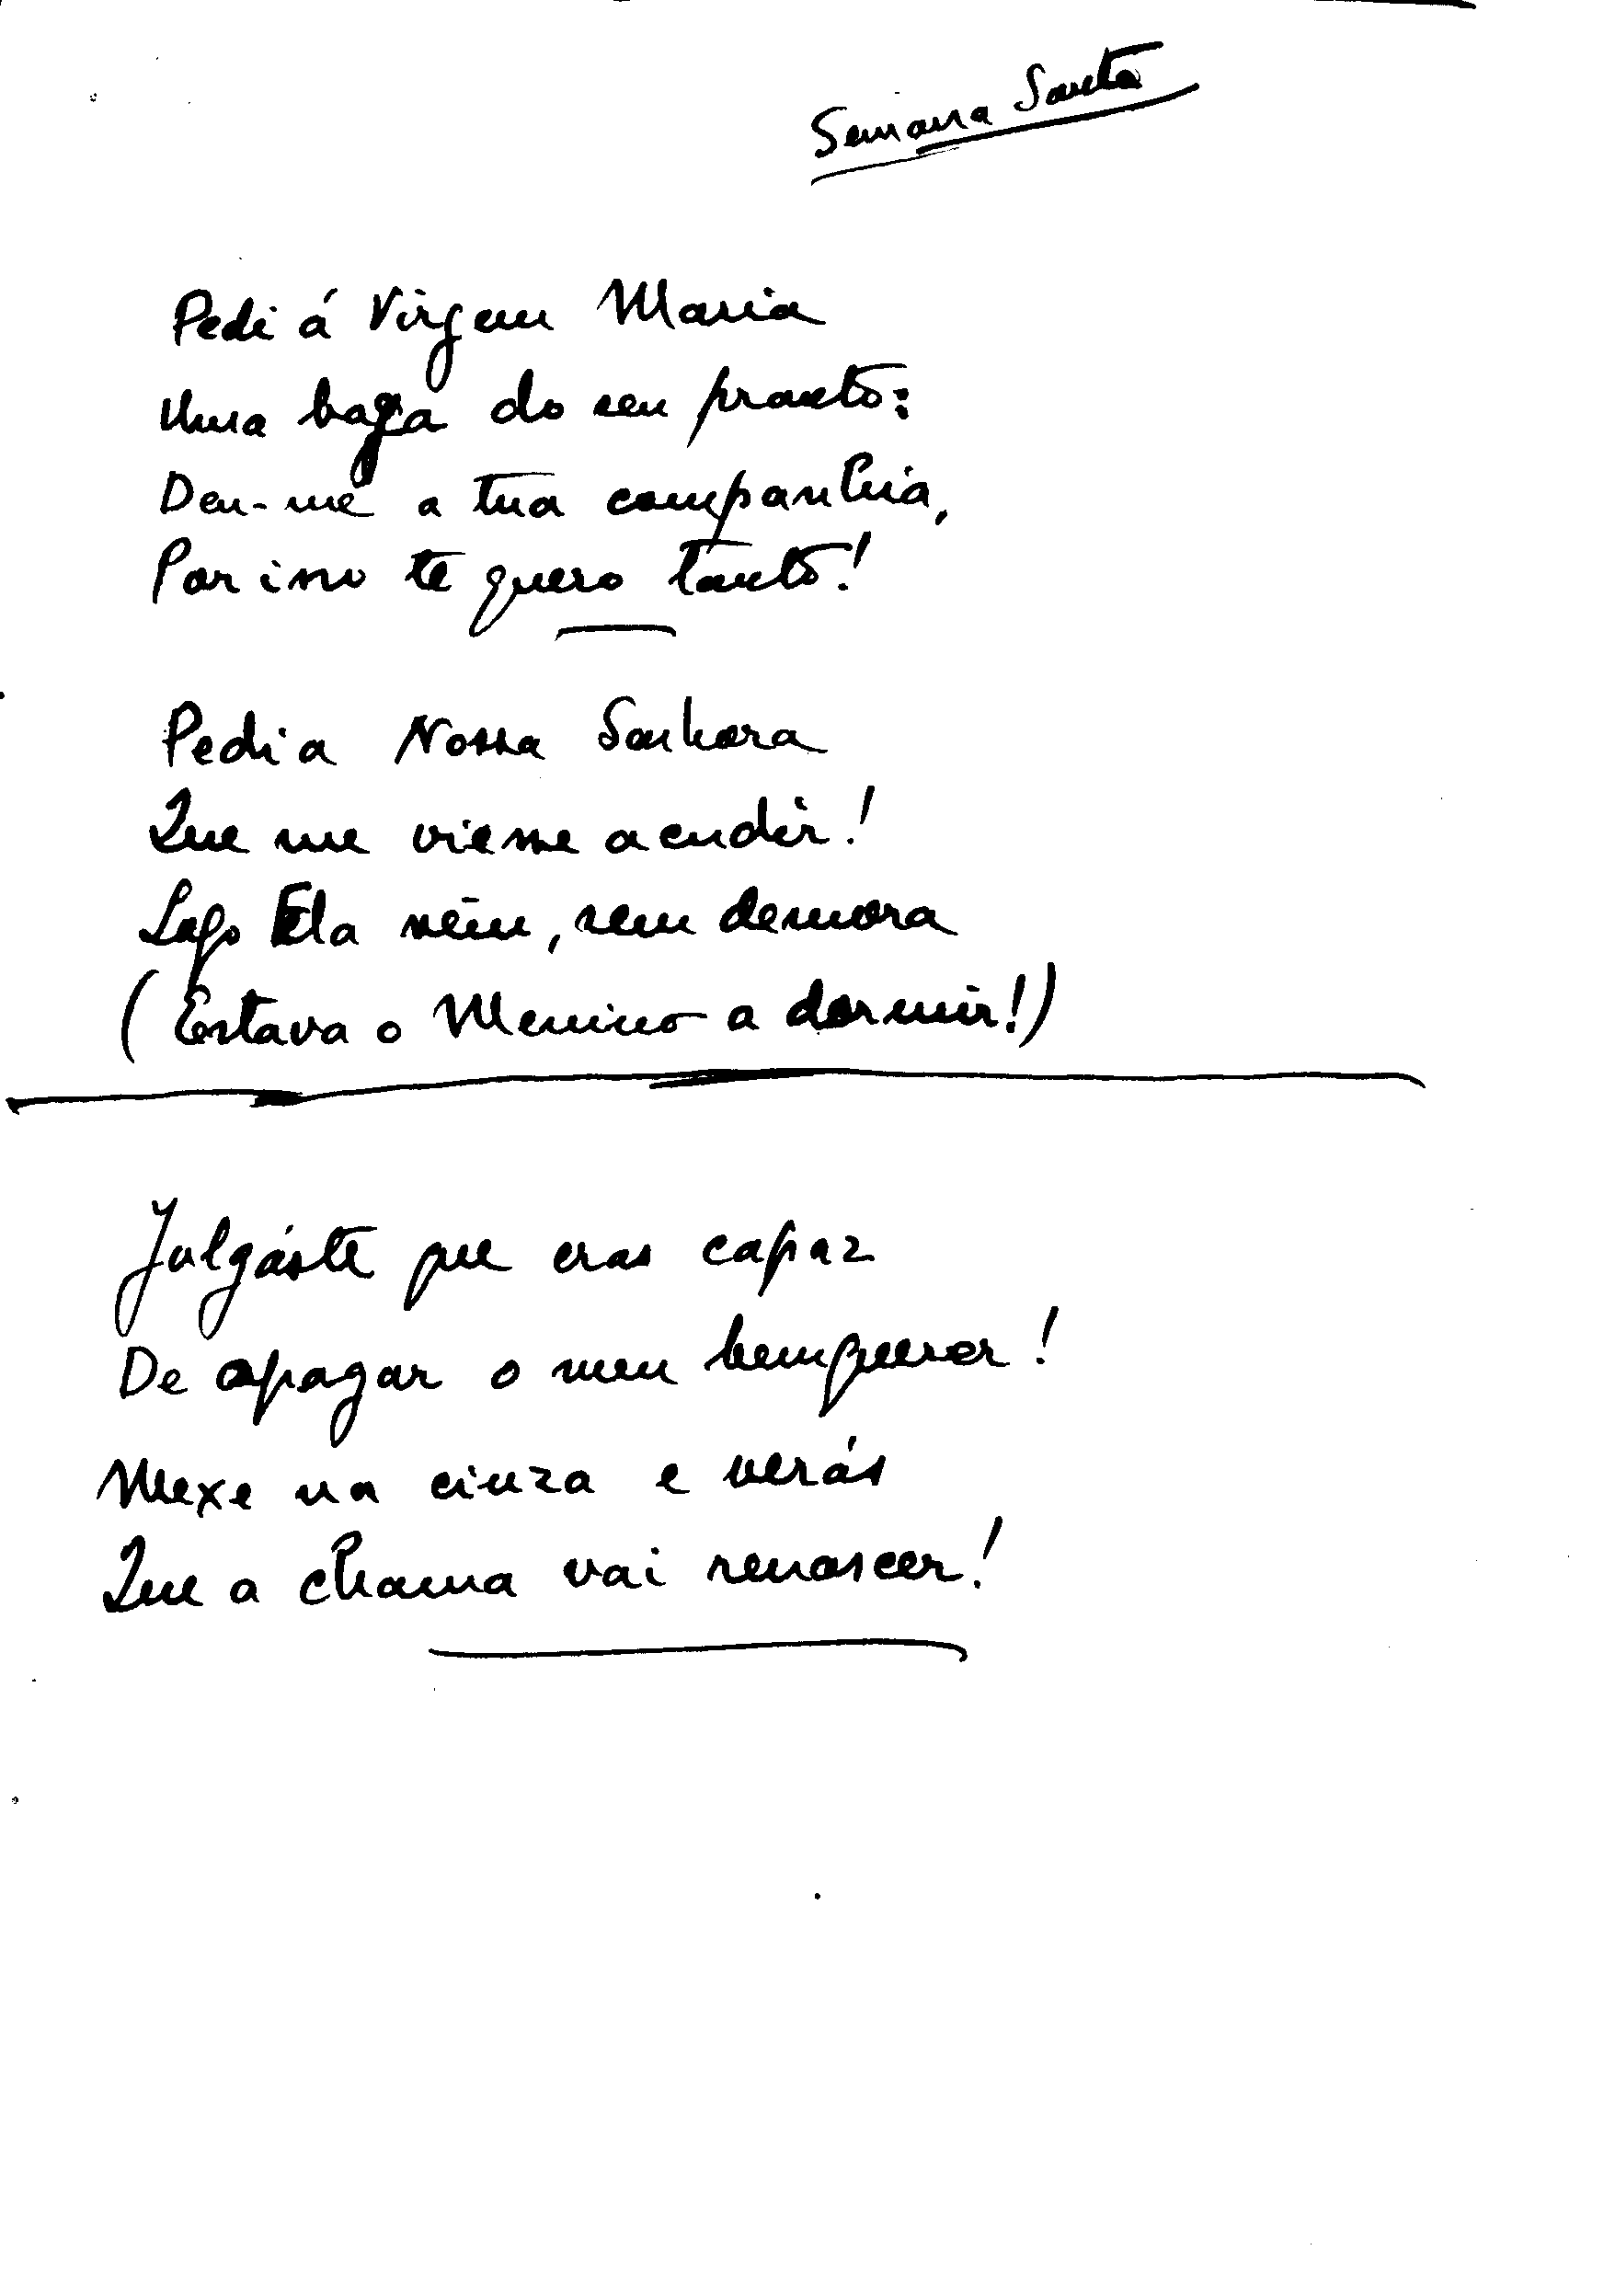 Semana Santa
Pedi á Virgem Maria
Uma baga do seu pranto:
Deu-me a tua companhia,
Por isso te quero tanto!
Pedi a Nossa Senhora
Que me viesse acudir!
Logo Ela veiu, sem demora
(Estava o Menino a dormir!)
Julgáste que eras capaz
De apagar o meu bemquerer!
Mexe na cinza e verás
Que a chama vai renascer!